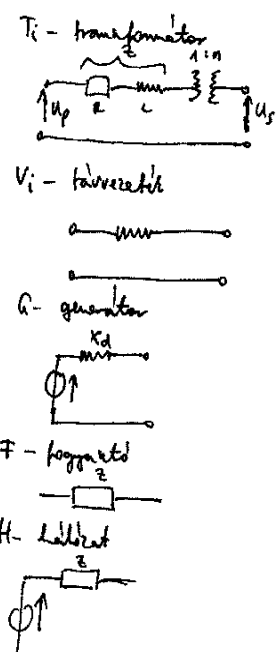 Ti - transzformátor
Z
1:n
Up R L Us
Vi - távvezeték
G - generátor
Xd
F - fogyasztó
Z
H - hálózat
Z